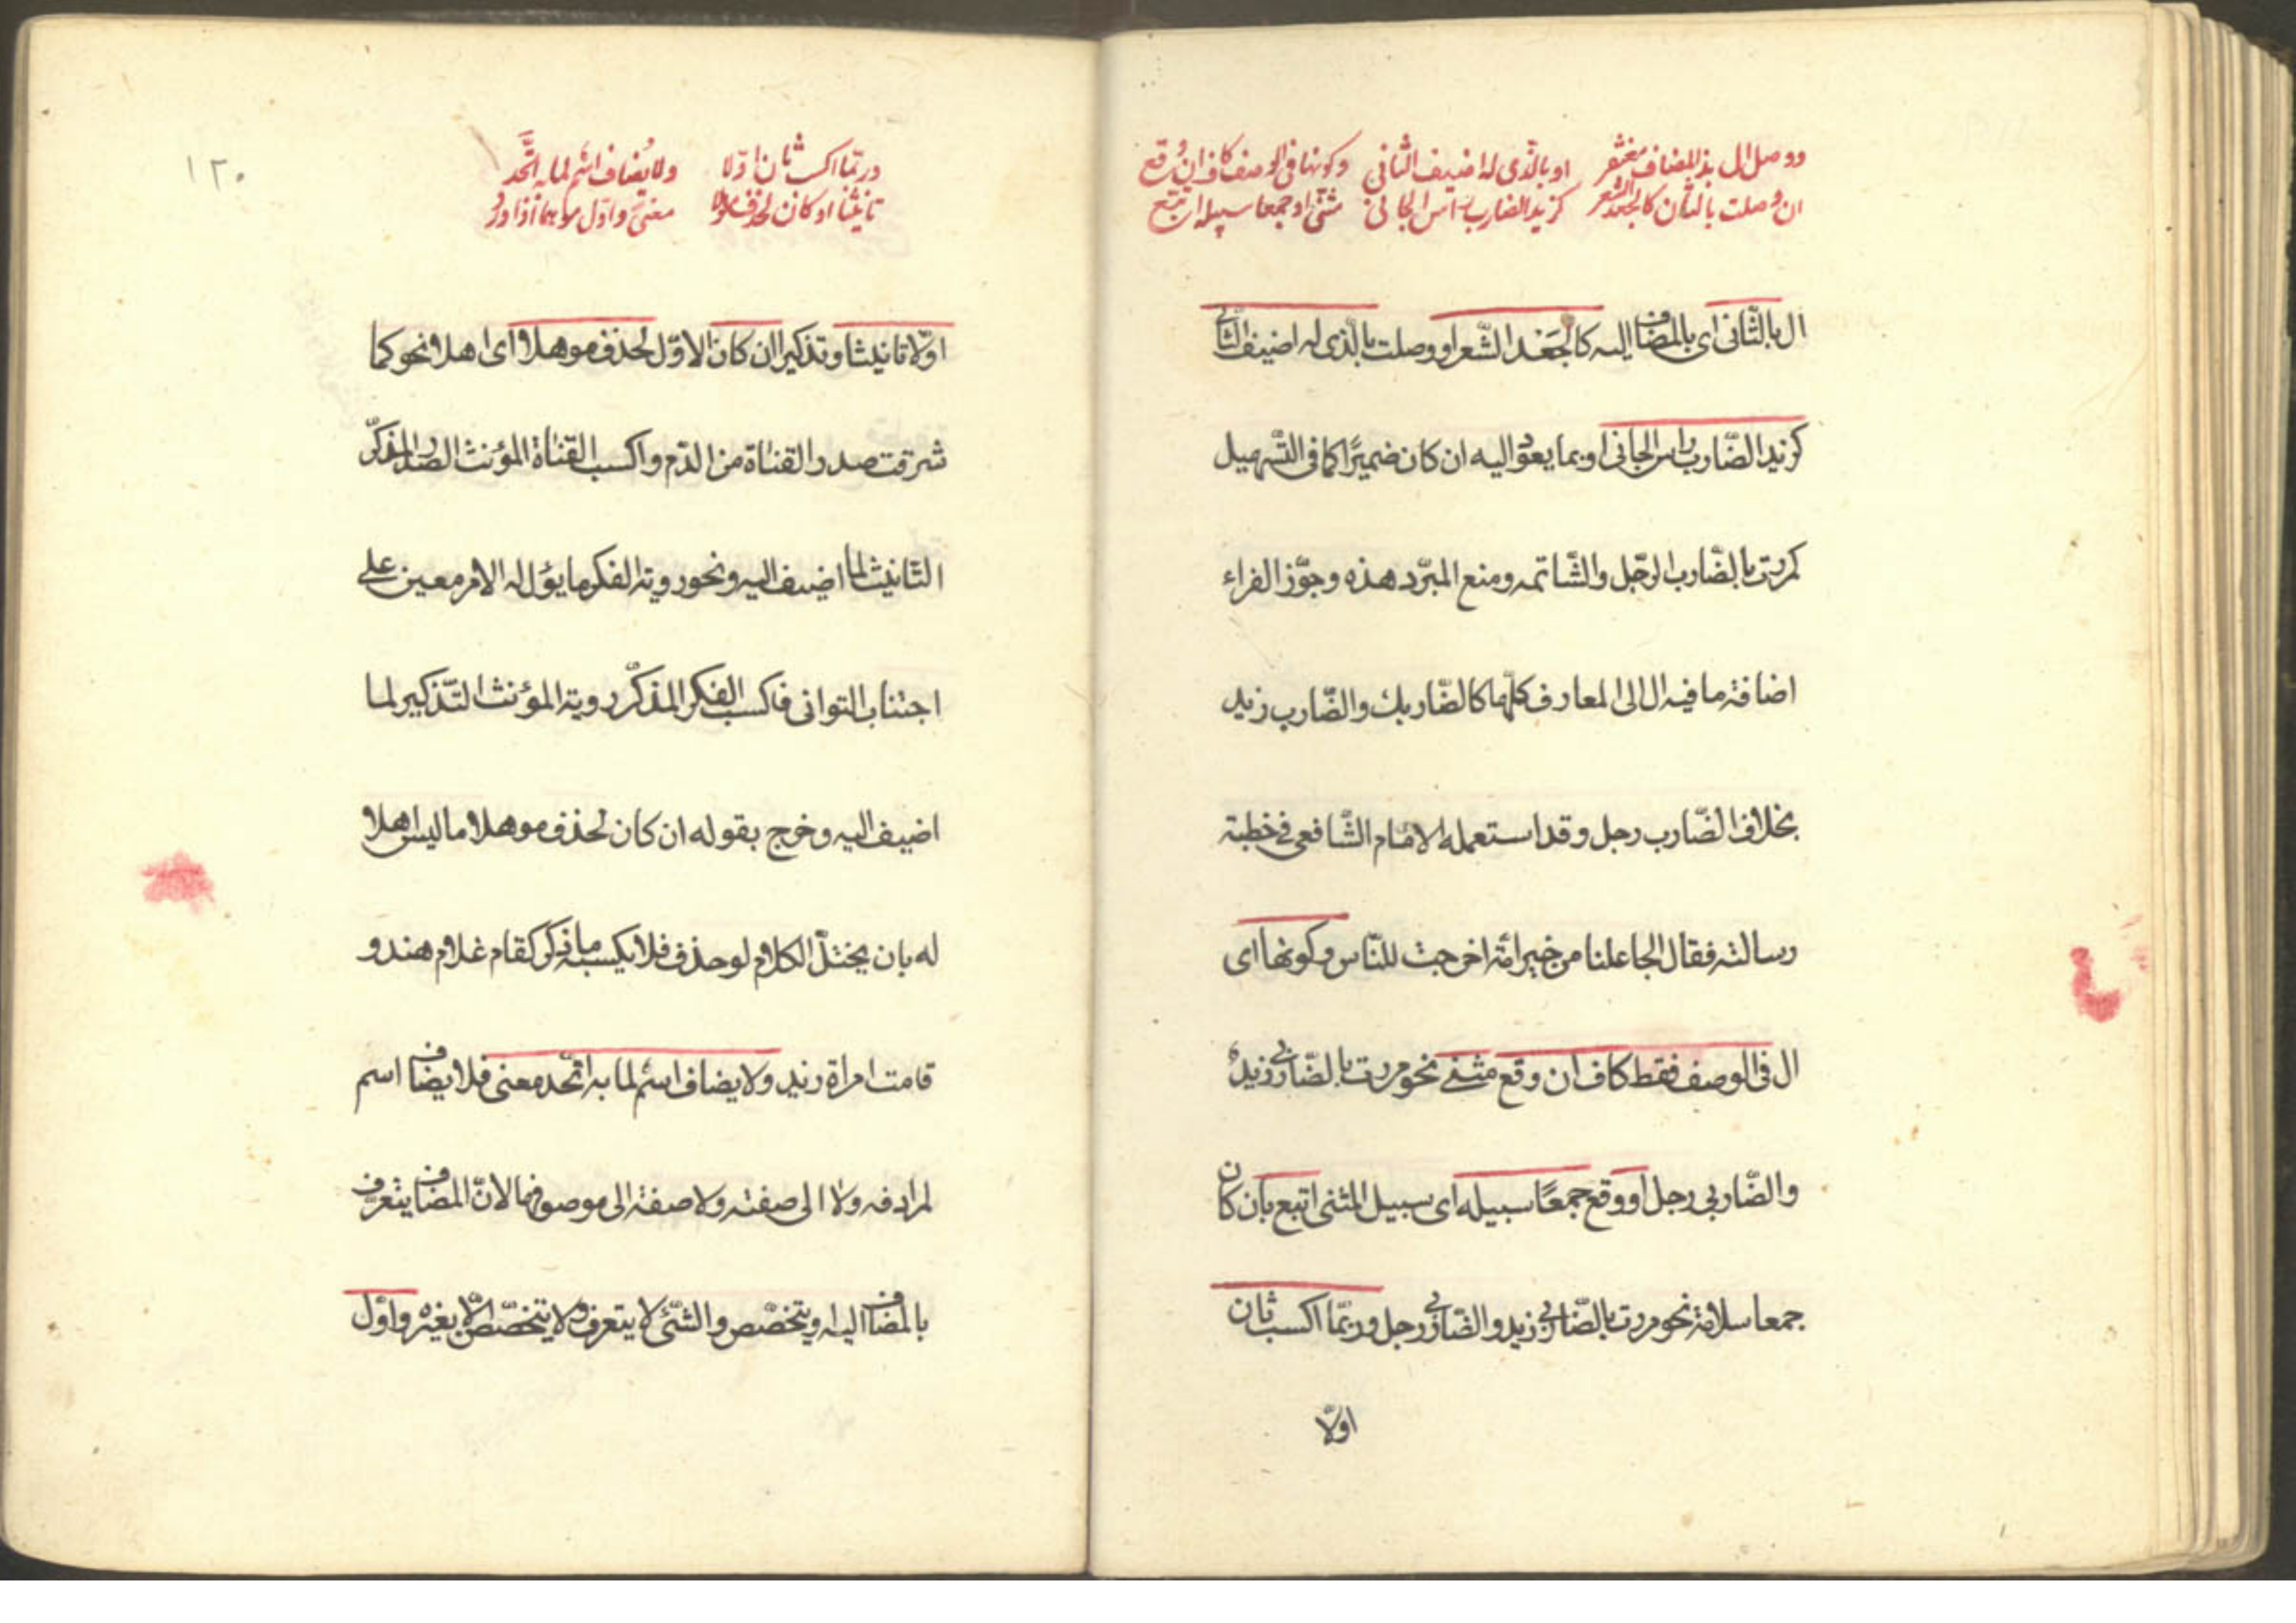 ووصل ال بذا المضاف مغتفر او بالذی له اضیف الثانی وکونها فی الوصف کاف ان وقع
ان وصلت بالثان کالجعد الشعر کزید الضارب راس الجانی مثنی او جمعا سبیله اتبع
ال بالثّانی ای بالمضاف الیه کالجَعْد الشّعر او وصلت بالّذی له اضیف الثّانی
کزید الضّارب راس الجانی او بما یعود الیه ان کان ضمیرًا کما فی التّسهیل
کمررت بالضّارب الرّجل والشّاتمه ومنع المبرّد هذه وجوّز الفراء
اضافة ما فیه ال الی المعارف کلّها کالضّاربك والضّارب زید
بخلاف الضّارب رجل وقد استعمله الامام الشّافعی فی خطبة
رسالته فقال الجاعلنا من خیر امّة اخرجت للنّاس وکونها ای
ال فی الوصف فقط کاف ان وقع مثنی نحو مررت بالضّاربی زید
والضّاربی رجل او وقع جمعًا سبیله ای سبیل المثنی اتبع بان کان
جمعا سلامة نحو مررت بالضّاربی زید والضّاربی رجل وربّما اکسب ثان
اولّا
١٢٠
وربّما اکسب ثان اوّلا ولا یُضاف اسم لما به اتَّحد
تانیثا ان کان لحذف موهلا معنی واوّل موهما اذا ورد
اوّلا تانیثا وتذکیرا ان کان الاوّل لحذف موهلا ای اهلا نحو کما
شرقت صدر القناة من الدّم واکسب القناة المؤنث الصّدر المذکّر
التّانیث لما اضیف الیه ونحو رویة الفکر ما یؤل له الامر معین علی
اجتناب التوانی فاکسب الفکر المذکّر رویة المؤنث التّذکیر لما
اضیف الیه وخرج بقوله ان کان لحذف موهلا ما لیس اهلا
له بان یختلّ الکلام لو حذف فلا یکسبه ما ذکر کقام غلام هند و
قامت امراة زید ولا یضاف اسم لما به اتّحد معنی فلا یضاف اسم
لمرادفه ولا الی صفته ولا صفة الی موصوفها لانّ المضاف یتعرّف
بالمضاف الیه او یتخصّص والشّئ لا یتعرف ولا یتخصّص الّا بغیره واوّل